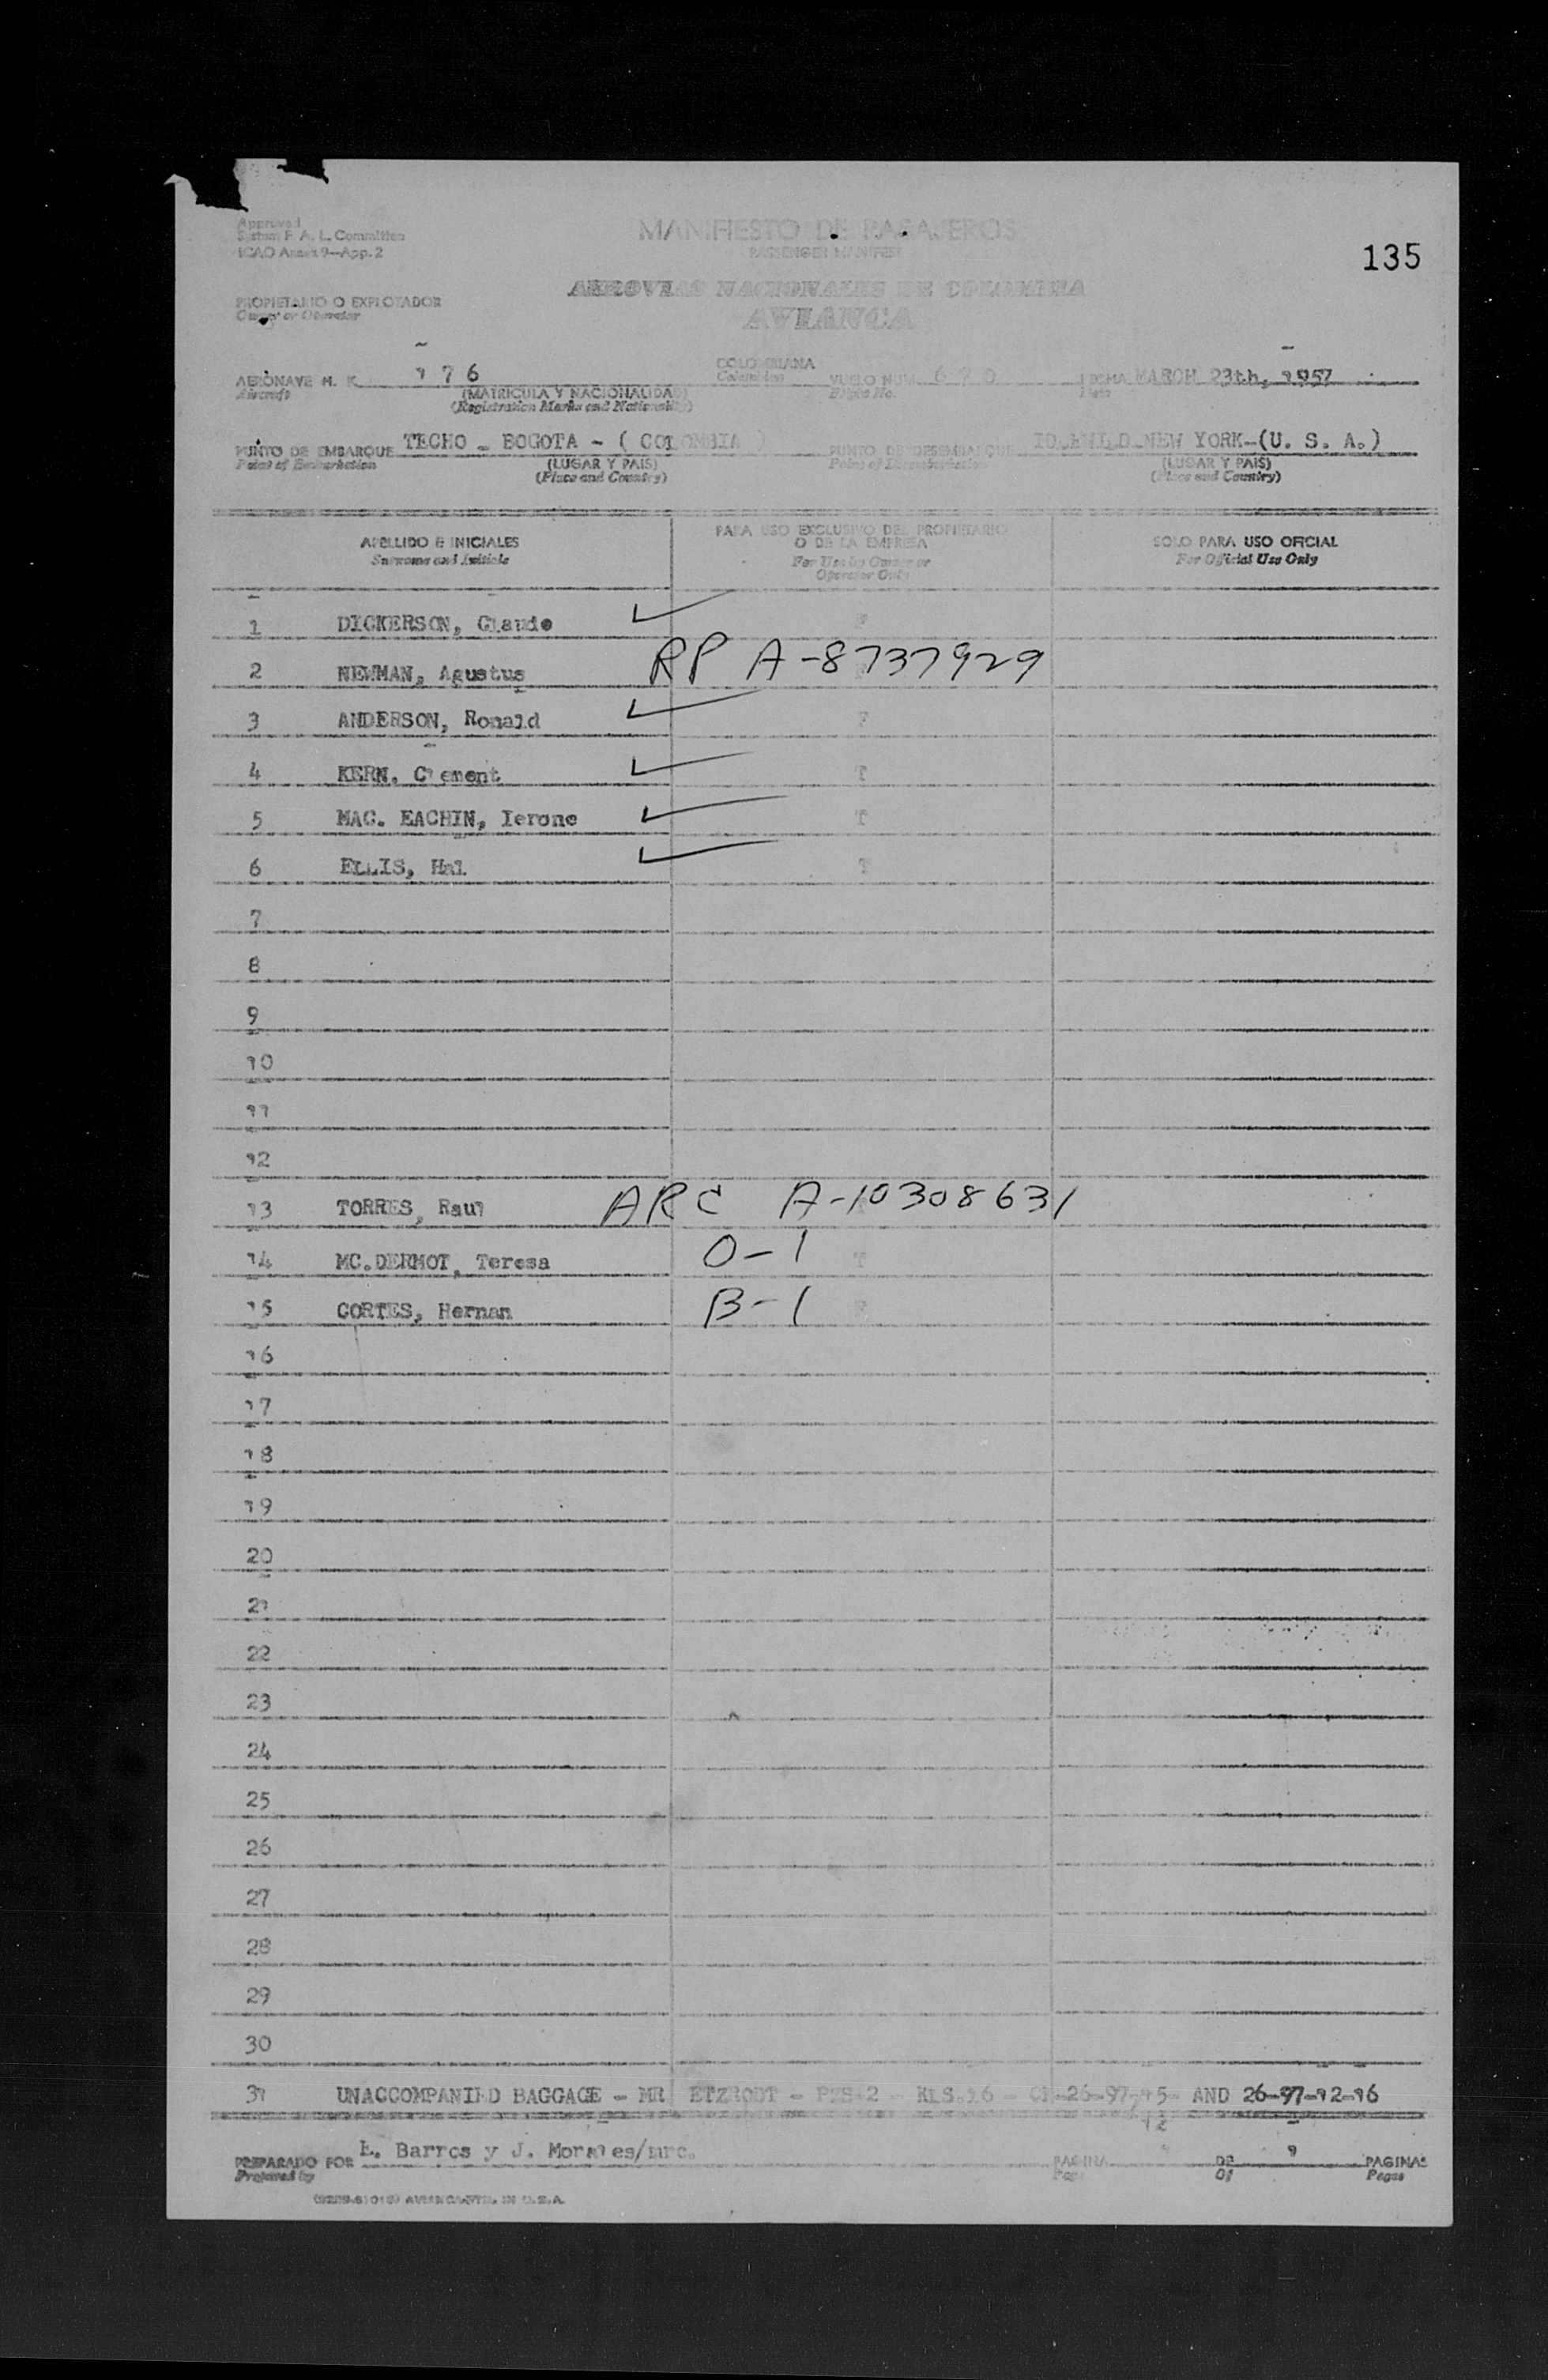 135
Approved
System F. A. L. Committee
ICAO Annex 9—App. 2
MANIFIESTO DE PASAJEROS
PASSENGER MANIFEST
PROPIETARIO O EXPLOTADOR
Owner or Operator
AEROVIAS NACIONALES DE COLOMBIA
AVIANCA
AERONAVE H. K. 176 COLOMBIANA VUELO NUM. 670 FECHA MARCH 23th, 1957
Aircraft (MATRICULA Y NACIONALIDAD) Colombian Flight No. Date
(Registration Marks and Nationality)
PUNTO DE EMBARQUE TECHO - BOGOTA - ( COLOMBIA ) PUNTO DE DESEMBARQUE IDLEWILD NEW YORK-(U. S. A.)
Point of Embarkation (LUGAR Y PAIS) Point of Disembarkation (LUGAR Y PAIS)
(Place and Country) (Place and Country)
APELLIDO E INICIALES PARA USO EXCLUSIVO DEL PROPIETARIO O DE LA EMPRESA SOLO PARA USO OFICIAL
Surname and Initials For Use by Owner or Operator Only For Official Use Only
1 DICKERSON, Claude ✓ F
2 NEWMAN, Agustus RP A-8737929
3 ANDERSON, Ronald ✓ F
4 KERN, Clement ✓ T
5 MAC. EACHIN, Ierone ✓ T
6 ELLIS, Hal ✓ T
7
8
9
10
11
12
13 TORRES, Raul ARC A-10308631
14 MC.DERMOT, Teresa O-1 T
15 CORTES, Hernan B-1 F
16
17
18
19
20
21
22
23
24
25
26
27
28
29
30
31 UNACCOMPANIED BAGGAGE - MR ETZRODT - PZS-2 - KLS.16 - 26-97-15- AND 26-97-12-16
12
PREPARADO POR E. Barros y J. Morales/mrc. PAGINA DE 1 PAGINAS
Prepared by Page Of Pages
AVIANCA IN U.S.A.